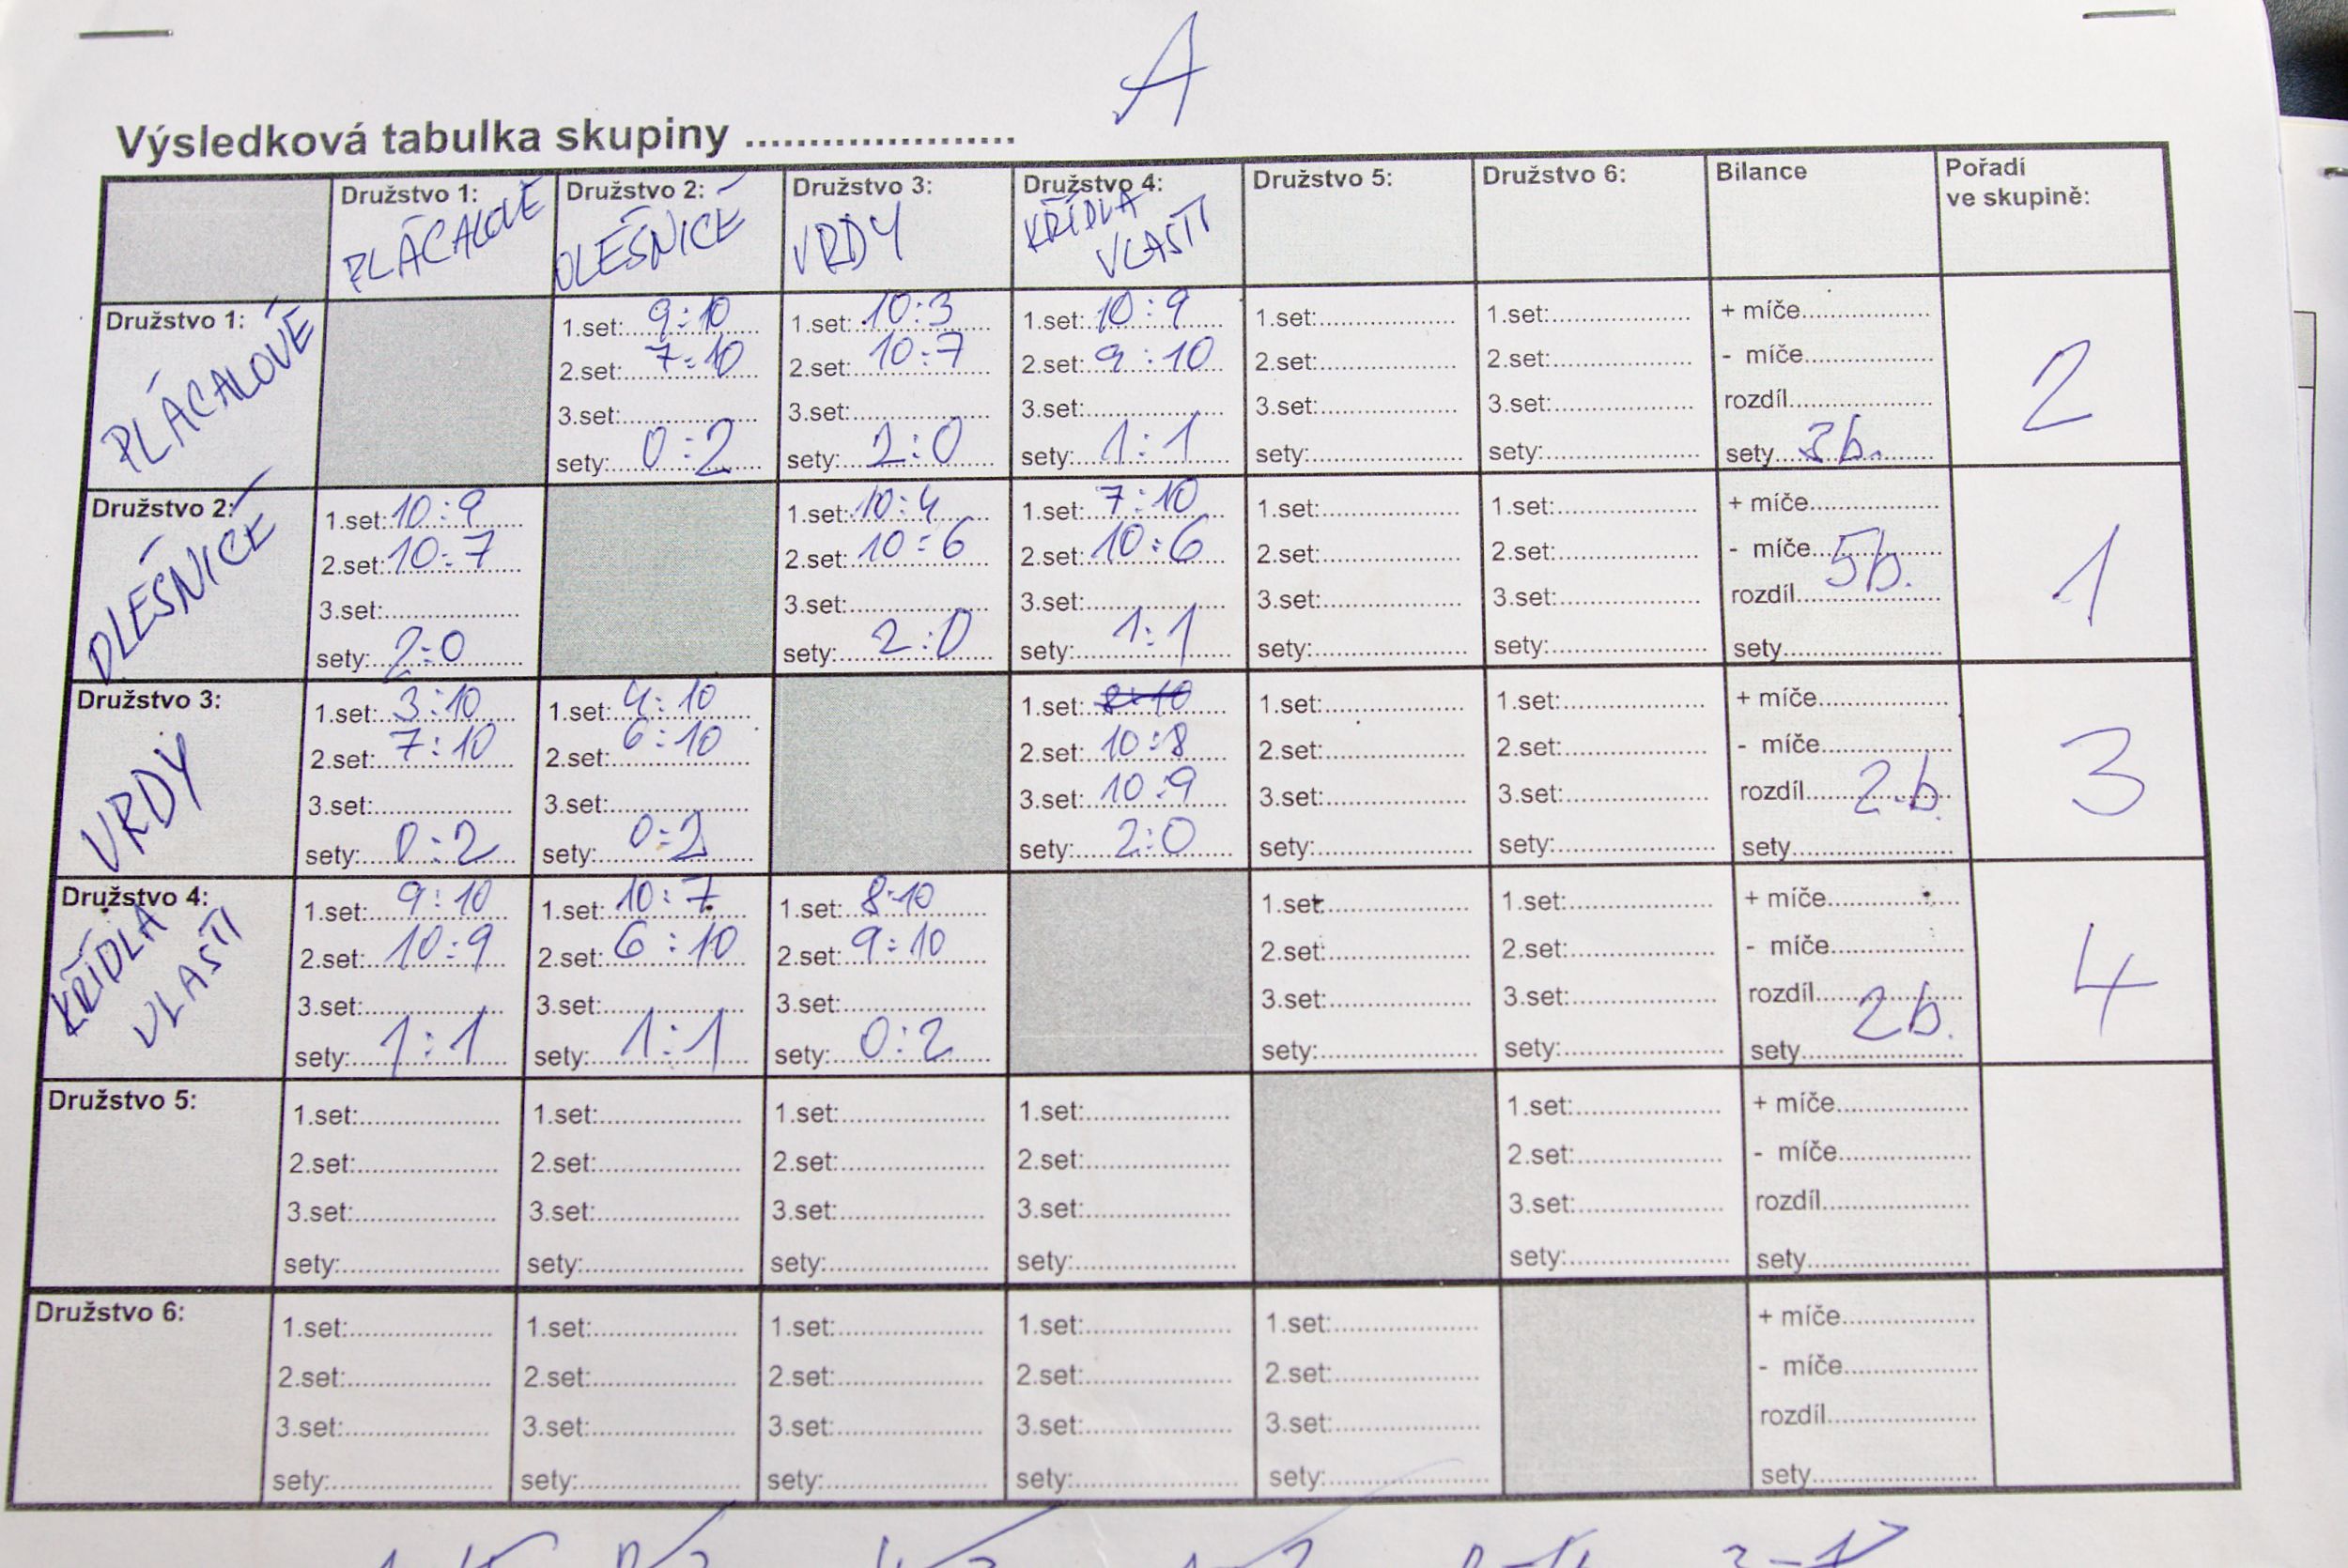 A
Výsledková tabulka skupiny ......................
Družstvo 1: PLÁCALOVÉ
Družstvo 2: OLEŠNICE
Družstvo 3: VRDY
Družstvo 4: KŘÍDLA VLASTI
Družstvo 5:
Družstvo 6:
Bilance
Pořadí
ve skupině:
Družstvo 1: PLÁCALOVÉ
1.set: 9:10
2.set: 7:10
3.set:
sety: 0:2
1.set: 10:3
2.set: 10:7
3.set:
sety: 2:0
1.set: 10:9
2.set: 9:10
3.set:
sety: 1:1
1.set:
2.set:
3.set:
sety:
1.set:
2.set:
3.set:
sety:
+ míče
- míče
rozdíl
sety 3b.
2
Družstvo 2: OLEŠNICE
1.set: 10:9
2.set: 10:7
3.set:
sety: 2:0
1.set: 10:4
2.set: 10:6
3.set:
sety: 2:0
1.set: 7:10
2.set: 10:6
3.set:
sety: 1:1
1.set:
2.set:
3.set:
sety:
1.set:
2.set:
3.set:
sety:
+ míče
- míče
rozdíl 5b.
sety
1
Družstvo 3: VRDY
1.set: 3:10
2.set: 7:10
3.set:
sety: 0:2
1.set: 4:10
2.set: 6:10
3.set:
sety: 0:2
1.set: 8:10
2.set: 10:8
3.set: 10:9
sety: 2:0
1.set:
2.set:
3.set:
sety:
1.set:
2.set:
3.set:
sety:
+ míče
- míče
rozdíl 2b.
sety
3
Družstvo 4: KŘÍDLA VLASTI
1.set: 9:10
2.set: 10:9
3.set:
sety: 1:1
1.set: 10:7
2.set: 6:10
3.set:
sety: 1:1
1.set: 8:10
2.set: 9:10
3.set:
sety: 0:2
1.set:
2.set:
3.set:
sety:
1.set:
2.set:
3.set:
sety:
+ míče
- míče
rozdíl 2b.
sety
4
Družstvo 5:
1.set:
2.set:
3.set:
sety:
1.set:
2.set:
3.set:
sety:
1.set:
2.set:
3.set:
sety:
1.set:
2.set:
3.set:
sety:
1.set:
2.set:
3.set:
sety:
+ míče
- míče
rozdíl
sety
Družstvo 6:
1.set:
2.set:
3.set:
sety:
1.set:
2.set:
3.set:
sety:
1.set:
2.set:
3.set:
sety:
1.set:
2.set:
3.set:
sety:
1.set:
2.set:
3.set:
sety:
+ míče
- míče
rozdíl
sety